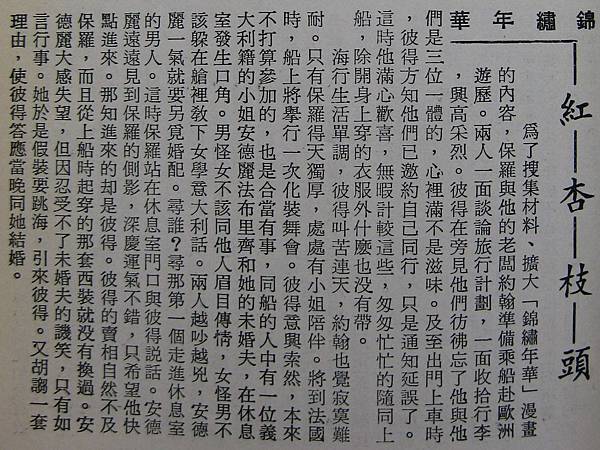 錦繡年華
紅杏枝頭
爲了搜集材料、擴大「錦繡年華」漫畫
的內容，保羅與他的老闆約翰準備乘船赴歐洲
遊歷。兩人一面談論旅行計劃，一面收拾行李
，興高采烈。彼得在旁見他們彷彿忘了他與他
們是三位一體的，心裡滿不是滋味。及至出門上車時
，彼得方知他們已邀約自己同行，只是通知延誤了。
這時他滿心歡喜，無暇計較這些，匆匆忙忙的隨同上
船，除開身上穿的衣服外什麽也没有帶。
海行生活單調，彼得叫苦連天，約翰也覺寂寞難
耐。只有保羅得天獨厚，處處有小姐陪伴。將到法國
時，船上將擧行一次化裝舞會。彼得意興索然，本來
不打算參加的，也是合當有事，同船的人中有一位義
大利籍的小姐安德麗法布里齊和她的未婚夫，在休息
室發生口角。男怪女不該同他人眉目傳情，女怪男不
該躱在艙裡敎下女學意大利話。兩人越吵越兇，安德
麗一氣就要另覓婚配。尋誰？尋那第一個走進休息室
的男人。這時保羅站在休息室門口與彼得説話。安德
麗遠遠見到保羅的側影，深慶運氣不錯，只希望他快
點進來。那知進來的却是彼得。彼得的賣相自然不及
保羅，而且從上船時起穿的那套西裝就没有換過。安
德麗大感失望，但因忍受不了未婚夫的譏笑，只有如
言行事。她於是假裝要跳海，引來彼得。又胡謅一套
理由，使彼得答應當晚同她結婚。